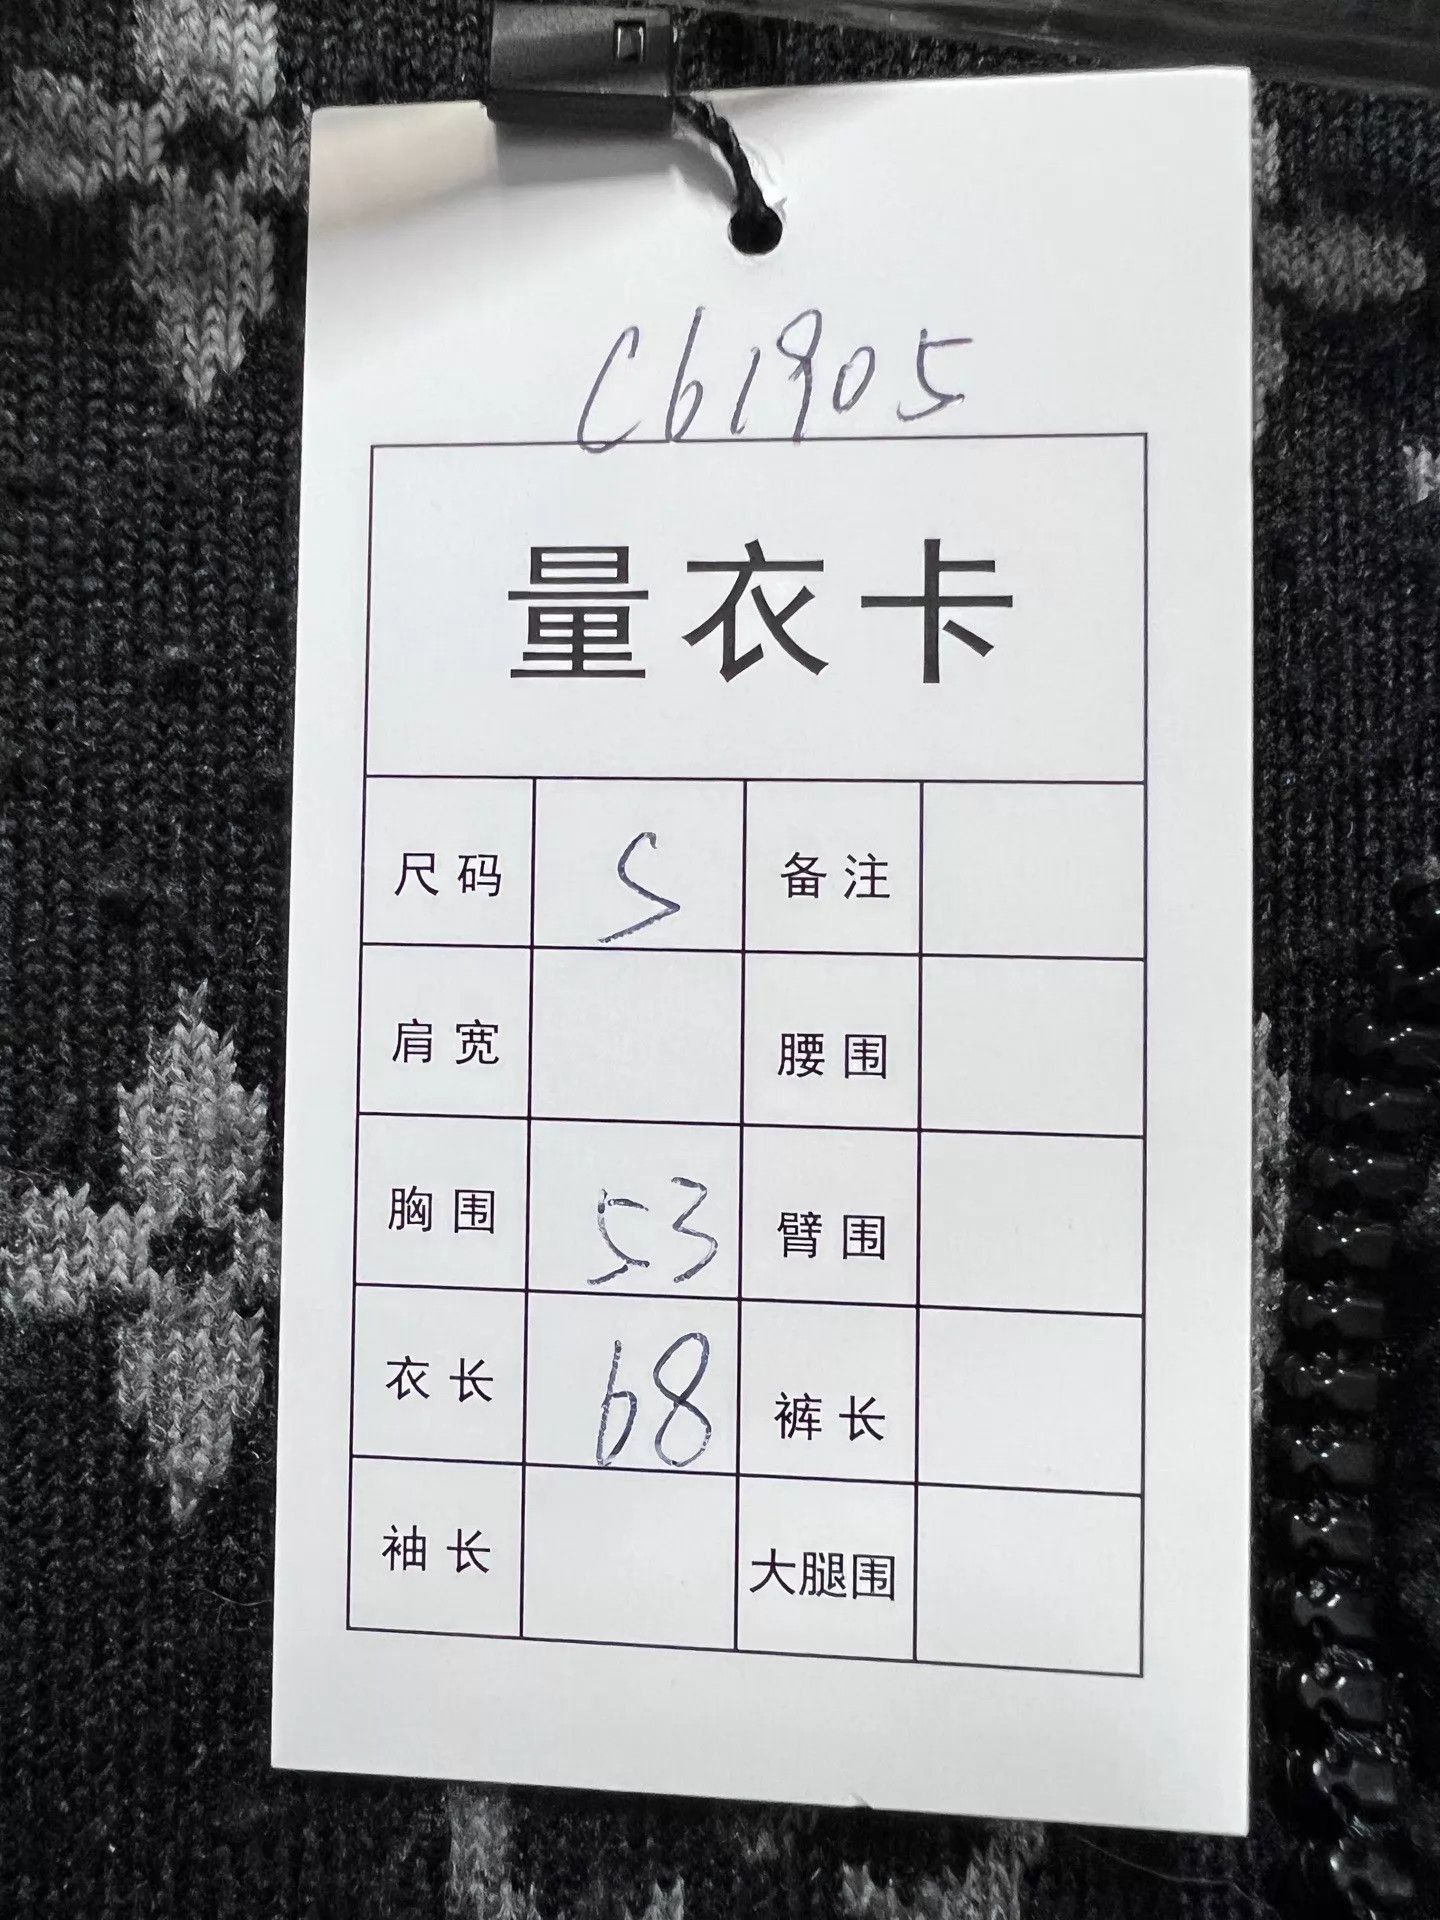 C61905
量衣卡
尺码 S 备注
肩宽 腰围
胸围 53 臂围
衣长 68 裤长
袖长 大腿围